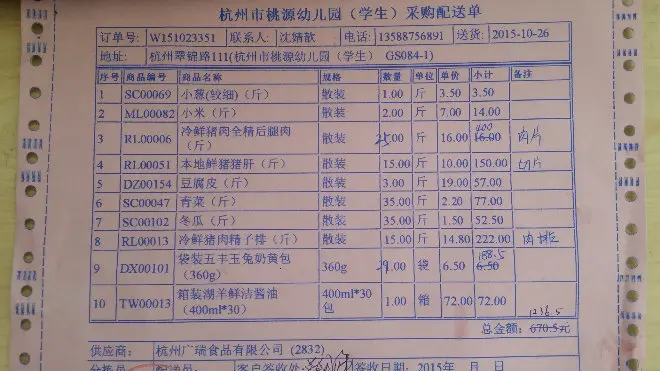 杭州市桃源幼儿园（学生）采购配送单
订单号: W151023351 联系人: 沈婧歆 电话: 13588756891 送货: 2015-10-26
地址: 杭州翠锦路111(杭州市桃源幼儿园（学生） GS084-1)
序号 商品编号 商品名称 规格 数量 单位 单价 小计 备注
1 SC00069 小葱(较细)（斤） 散装 1.00 斤 3.50 3.50
2 ML00082 小米（斤） 散装 2.00 斤 7.00 14.00
400
3 RL00006 冷鲜猪肉全精后腿肉（斤） 散装 25.00 斤 16.00 16.00 肉片
4 RL00051 本地鲜猪猪肝（斤） 散装 15.00 斤 10.00 150.00 切片
5 DZ00154 豆腐皮（斤） 散装 3.00 斤 19.00 57.00
6 SC00047 青菜（斤） 散装 35.00 斤 2.20 77.00
7 SC00102 冬瓜（斤） 散装 35.00 斤 1.50 52.50
8 RL00013 冷鲜猪肉精子排（斤） 散装 15.00 斤 14.80 222.00 肉排
188.5
9 DX00101 袋装五丰玉兔奶黄包（360g） 360g 29.00 袋 6.50 6.50
10 TW00013 箱装湖羊鲜洁酱油（400ml*30） 400ml*30包 1.00 箱 72.00 72.00
1236.5
总金额: 670.5元
供应商: 杭州广瑞食品有限公司 (2832)
分拣员 配送员 客户签收处: 签收日期: 2015年 月 日